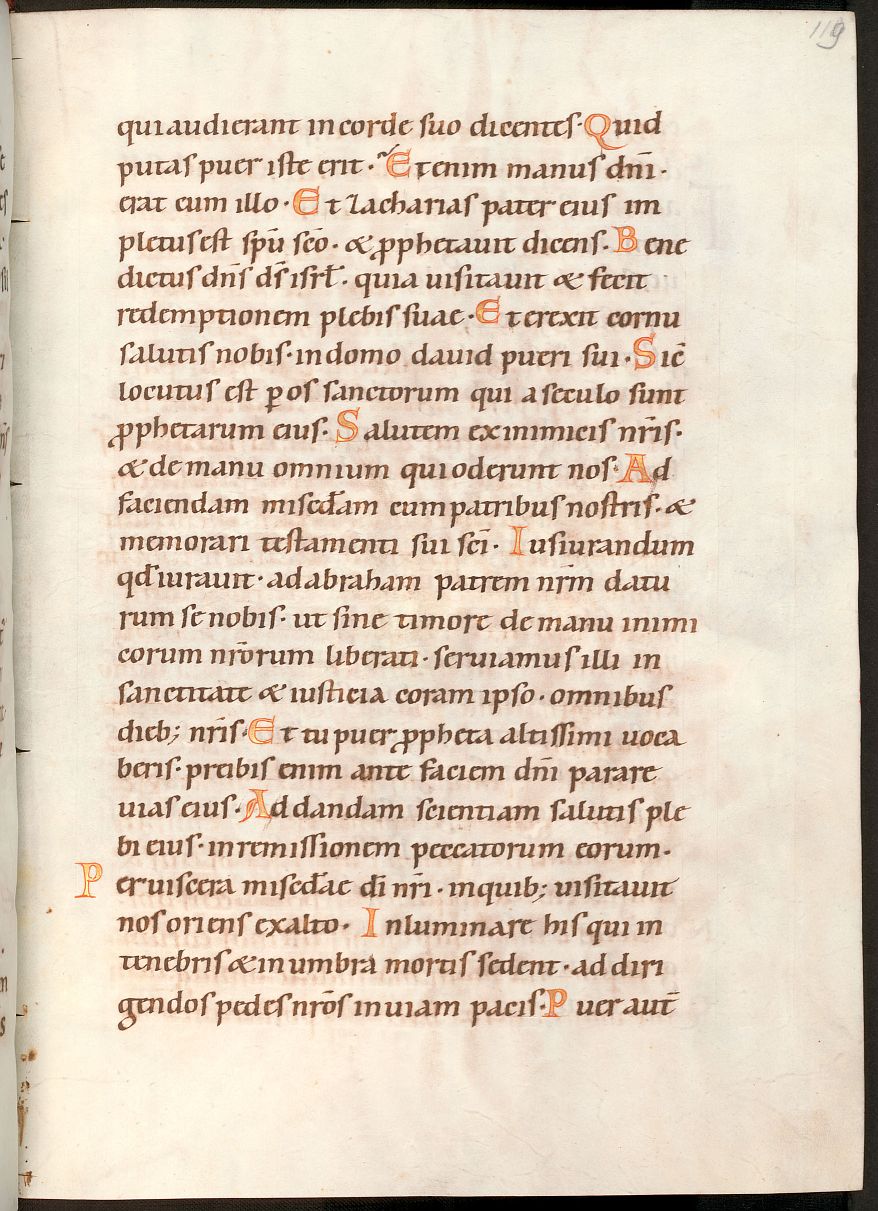 119
qui audierant in corde suo dicentes. Quid
putas puer iste erit. Etenim manus dñi.
erat cum illo. Et zacharias pater eius im
pletus est spū sc̄o. & ꝓphetauit dicens. Bene
dictus dn̄s ds̄ isrł. quia uisitauit & fecit
redemptionem plebis suae. Et erexit cornu
salutis nobis. in domo dauid pueri sui. Sic̄
locutus est ꝑ os sanctorum qui a seculo sunt
ꝓphetarum eius. Salutem ex inimicis nr̄is.
& de manu omnium qui oderunt nos. Ad
faciendam misc̄dam cum patribus nostris. &
memorari testamenti sui sc̄i. Iusiurandum
qđ iurauit. ad abraham patrem nr̄m datu
rum se nobis. ut sine timore de manu inimi
corum nr̄orum liberati. seruiamus illi in
sanctitate & iusticia coram ipso. omnibus
dieb; nr̄is. Et tu puer ꝓpheta altissimi uoca
beris. preibis enim ante faciem dn̄i parare
uias eius. Ad dandam scientiam salutis ple
bi eius. in remissionem peccatorum eorum.
Per uiscera misc̄dae dī nr̄i. in quib; uisitauit
nos oriens ex alto. Inluminare his qui in
tenebris & in umbra mortis sedent. ad diri
gendos pedes nr̄os in uiam pacis. Puer aut̄